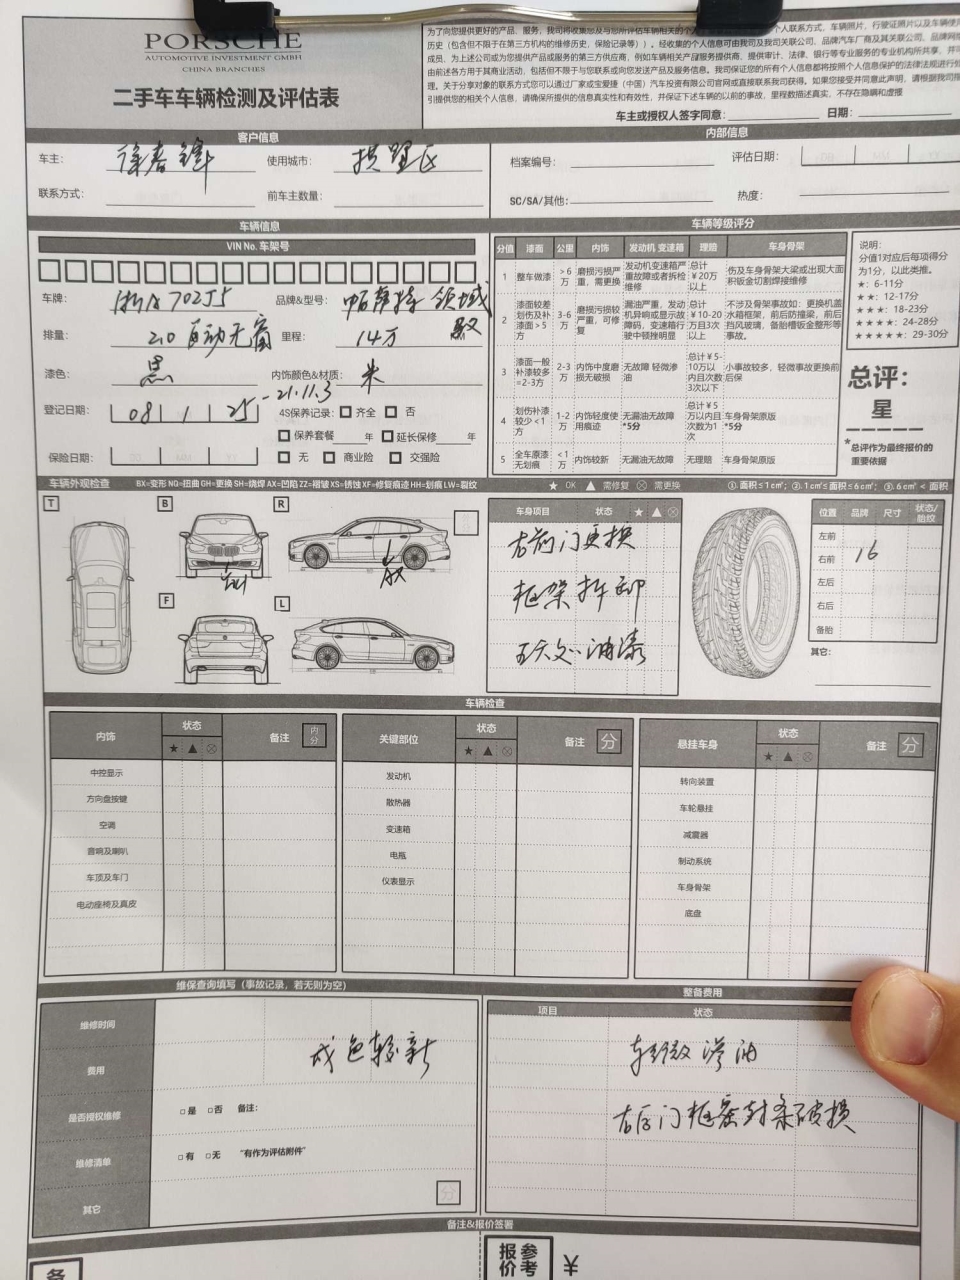 PORSCHE
AUTOMOTIVE INVESTMENT GMBH
CHINA BRANCHES
二手车车辆检测及评估表
为了向您提供更好的产品、服务，我司将收集您及与您所评估车辆相关的个人
个人联系方式、车辆照片，行驶证照片以及车辆使用
历史（包含但不限于在第三方机构的维修历史、保险记录等）)。经收集的个人信息可由我司及我司关联公司、品牌汽车厂商及其关联公司、品牌网
成员、为上述公司或为您提供产品或服务的第三方供应商，例如车辆相关产品服务提供商、提供审计、法律、银行等专业服务的专业机构所共享，并可
由前述各方用于其商业活动，包括但不限于与您联系或向您发送产品及服务信息。我司保证您的所有个人信息都将按照个人信息保护的法律法规进行处
理。关于分享对象的联系方式您可以通过厂家或宝爱捷（中国）汽车投资有限公司官网或直接联系我司获得。如果您接受并同意此声明，请根据我司指
引提供您的相关个人信息，请确保所提供的信息真实性和有效性，并保证下述车辆的以前的事故，里程数描述真实，不存在隐瞒和虚报
车主或授权人签字同意： 日期：
客户信息 内部信息
车主： 徐春锋 使用城市： 拱墅区
档案编号： 评估日期：
联系方式： 前车主数量：
SC/SA/其他： 热度：
车辆信息 车辆等级评分
VIN No. 车架号
车牌： 浙A702J5 品牌&型号： 帕萨特 领域
排量： 2.0 自动无窗 里程： 14万 KM
漆色： 黑 内饰颜色&材质： 米
登记日期： 08 1 25 -21.11.3 4S保养记录： 齐全 否
保养套餐 年 延长保修 年
保险日期： 无 商业险 交强险
分值 漆面 公里 内饰 发动机 变速箱 理赔 车身骨架
1 整车做漆 >6万 磨损污损严重，需更换 发动机变速箱严重故障或者拆检维修 总计￥20万以上 伤及车身骨架大梁或出现大面积钣金切割焊接维修
2 漆面较差划伤及补漆面>5方 3-6万 磨损污损较严重，可修复 漏油严重，发动机异响或显示故障码，变速箱行驶中顿挫明显 总计￥10-20万且3次以上 不涉及骨架事故如：更换机盖水箱框架，前后防撞梁，前后挡风玻璃，备胎槽钣金整形等事故。
3 漆面一般补漆较多=2-3方 2-3万 内饰中度磨损无破损 无故障 轻微渗油 总计￥5-10万以内且次数3次以下 小事故较多，轻微事故更换前后保
4 划伤补漆较少<1方 1-2万 内饰轻度使用痕迹 无漏油无故障 *5分 总计￥5万以内且次数为1次 车身骨架原版 *5分
5 全车原漆无划痕 <1万 内饰较新 无漏油无故障 无理赔 车身骨架原版
说明：
分值1对应后每项得分为1分，以此类推。
★：6-11分
★★：12-17分
★★★：18-23分
★★★★：24-28分
★★★★★：29-30分
总评：
星
*总评作为最终报价的重要依据
车辆外观检查 BX=变形 NQ=扭曲 GH=更换 SH=烧焊 AX=凹陷 ZZ=褶皱 XS=锈蚀 XF=修复痕迹 HH=划痕 LW=裂纹 ★ OK ▲ 需修复 ⊗ 需更换 ①.面积≤1c㎡；②.1c㎡≤面积≤6c㎡；③.6c㎡<面积
T B R
F L
车身项目 状态 ★ ▲ ⊗
右前门更换
框架拆卸
油漆
位置 品牌 尺寸 状态/胎纹
左前
右前 16
左后
右后
备胎
其它：
车辆检查
内饰 状态 ★ ▲ ⊗ 备注 内分
中控显示
方向盘按键
空调
音响及喇叭
车顶及车门
电动座椅及真皮
关键部位 状态 ★ ▲ ⊗ 备注 分
发动机
散热器
变速箱
电瓶
仪表显示
悬挂车身 状态 ★ ▲ ⊗ 备注 分
转向装置
车轮悬挂
减震器
制动系统
车身骨架
底盘
维保查询填写（事故记录，若无则为空） 整备费用
维修时间
费用
成色较新
是否授权维修 是 否 备注：
维修清单 有 无 “有作为评估附件”
其它 分
项目 状态
轻微渗油
右后门框密封条破损
备注&报价签署
备
参考报价 ￥